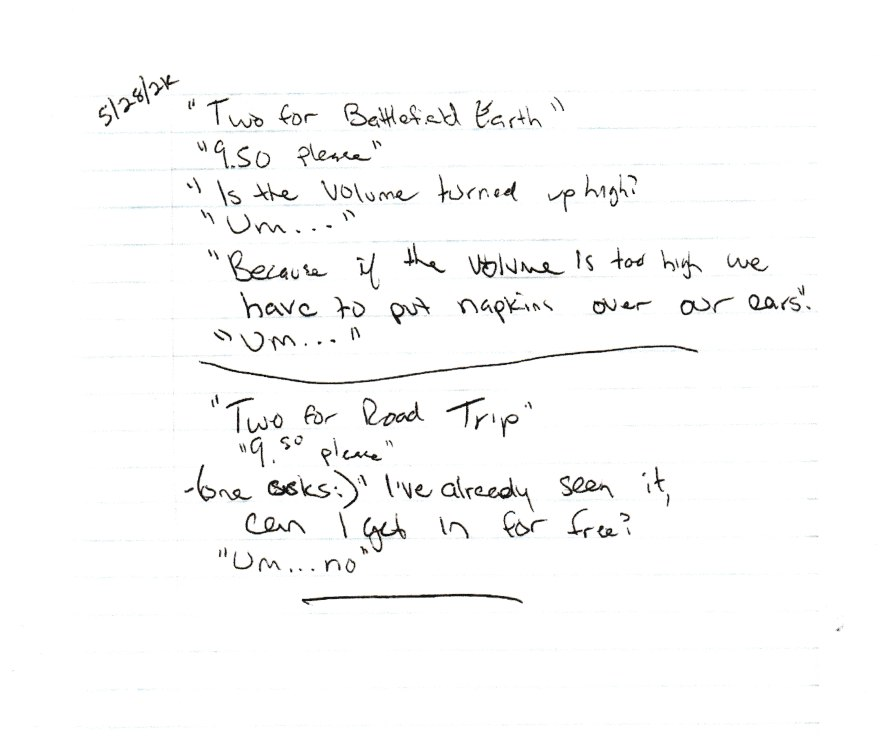 5/28/2K
"Two for Battlefield Earth"
"9.50 please"
"Is the volume turned up high?
"Um..."
"Because if the volume is too high we
have to put napkins over our ears".
"Um..."
"Two for Road Trip"
"9.50 please"
-(one asks:)" I've already seen it,
can I get in for free?
"Um...no"